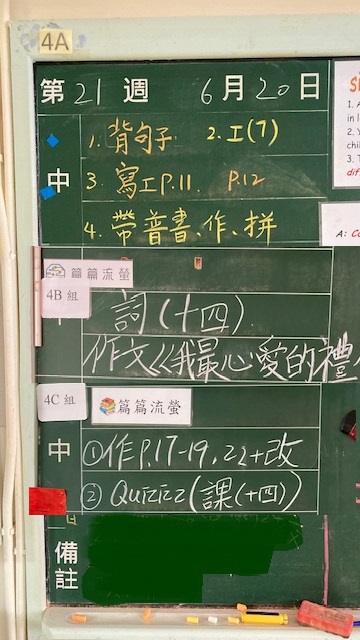 4A
第 21 週 6 月 20 日
中
1. 背句子 2. 工(7)
3. 寫工P.11. P.12
4. 帶普書、作、拼
篇篇流螢
4B 組
詞(十四)
作文《我最心愛的禮
4C 組
篇篇流螢
中
①作P.17-19, 22+改
② Quizizz(課(十四))
備註
A: Co